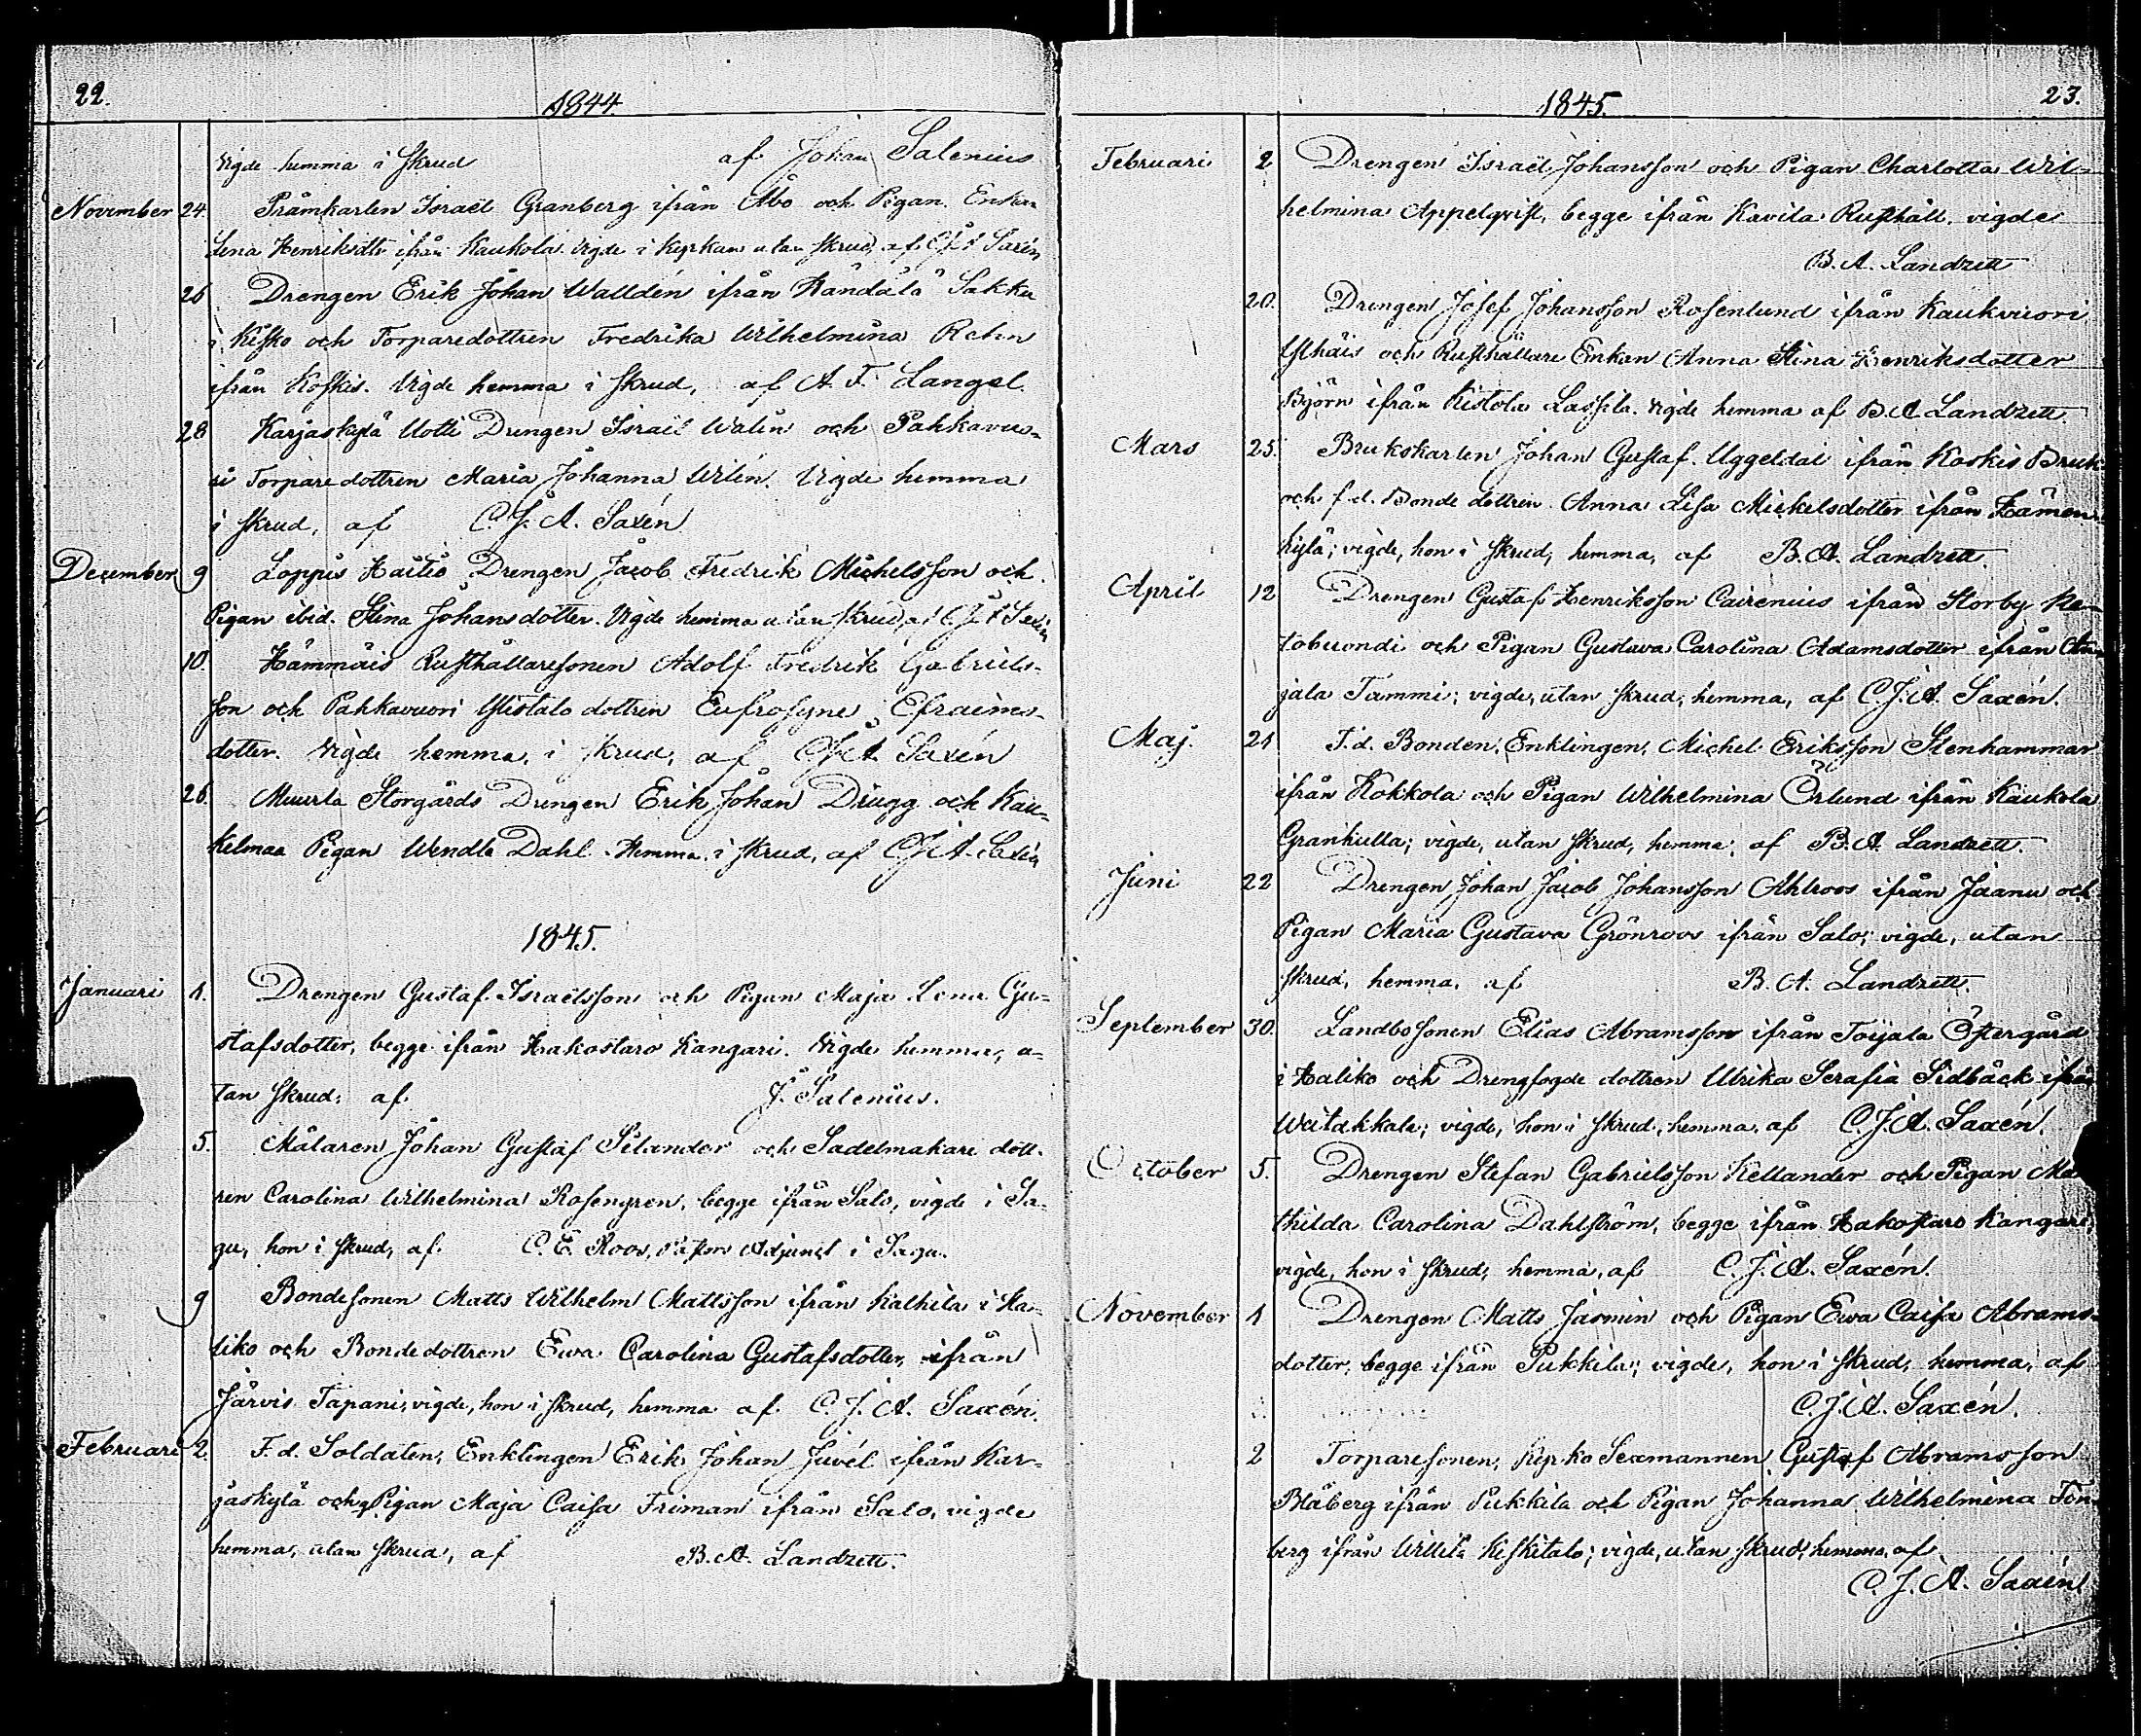 22.
1844.
Vigde hemma i skrud af Johan Salenius
November 24. Pråmkarlen Israël Granberg ifrån Åbo och Pigan Enkan
Lena Henriksdtr ifrån Kaukola. Vigde i kyrkan utan skrud, af C.J.A. Saxén
26 Drengen Erik Johan Walldén ifrån Sakku
i Kisko och Torparedottren Fredrika Wilhelmina Rehn
ifrån Koskis. Vigde hemma i skrud, af A. F. Langel.
28 Karjaskylä Uotti Drengen Israël Walin och Pahkavuo-
ri Torparedottren Maria Johanna Wilén. Vigde hemma
i skrud, af C. J. A. Saxén
December 9 Loppis Haitio Drengen Jacob Fredrik Michelsson och
Pigan ibid. Stina Johansdotter. Vigde hemma utan skrud af C.J.A. Saxén
10. Hämmäis Rusthållaresonen Adolf Fredrik Gabriels-
son och Pahkavuori Ylistalo dottren Eufrosyne Efraims-
dotter. Vigde hemma, i skrud, af C.J.A. Saxén
26. Muurla Storgårds Drengen Erik Johan Drugg och Kau-
kelmaa Pigan Wendla Dahl. Hemma i skrud, af C.J.A. Saxén
1845.
Januari 1. Drengen Gustaf Israelsson och Pigan Maja Lena Gu-
stafsdotter, begge ifrån Hakostaro Kangari. Vigde hemma, u-
tan skrud, af J. Salenius.
5. Målaren Johan Gustaf Silander och Sadelmakare dott-
ren Carolina Wilhelmina Rosengren, begge ifrån Salo, vigde i Sa-
gu, hon i skrud, af C. E. Roos, Pastors Adjunct i Sagu.
9 Bondesonen Matts Wilhelm Mattsson ifrån Kaihila i Ha-
liko och Bondedottren Ewa Carolina Gustafsdotter, ifrån
Järvis Tapani, vigde, hon i skrud, hemma af C. J. A. Saxén.
Februari 2. F.d. Soldaten, Enklingen Erik Johan Juvél ifrån Kar-
jaskylä och Pigan Maja Caisa Friman ifrån Salo, vigde
hemma, utan skrud, af B. A. Landzett.
1845.
23.
Februari 2 Drengen Israël Johansson och Pigan Charlotta Wil-
helmina Appelqvist, begge ifrån Kavila Rusthåll. vigde
B. A. Landzett
20. Drengen Josef Johansson Rosenlund ifrån Kaukvuori
Ylhäis och Rusthållare Enkan Anna Stina Henriksdotter
Björn ifrån Kistola Laspila. vigde hemma af B. A. Landzett.
Mars 25. Brukskarlen Johan Gustaf Uggeldal ifrån Koskis Bruk
och f.d. Bonde dottren Anna Lisa Mickelsdotter ifrån Hämeen-
kylä; vigde, hon i skrud, hemma, af B. A. Landzett.
April 12 Drengen Gustaf Henriksson Cairenius ifrån Storby Ke-
tobuondi och Pigan Gustava Carolina Adamsdotter ifrån An-
jala Tammi; vigde, utan skrud, hemma, af C. J. A. Saxén.
Maj. 21 F.d. Bonden, Enklingen, Michel Eriksson Stenhammar
ifrån Kokkola och Pigan Wilhelmina Örlund ifrån Kaukola
Grankulla; vigde, utan skrud, hemma, af B. A. Landzett.
Juni 22 Drengen Johan Jacob Johansson Ahlroos ifrån Jaanu och
Pigan Maria Gustava Grönroos ifrån Salo; vigde, utan
skrud, hemma, af B. A. Landzett.
September 30. Landbosonen Elias Abramsson ifrån Toijala Östergård
i Haliko och Drengfogde dottren Ulrika Serafia Sidbäck ifrån
Waitakkala; vigde, hon i skrud, hemma, af C. J. A. Saxén.
October 5. Drengen Stefan Gabrielsson Kellander och Pigan Ma-
thilda Carolina Dahlström, begge ifrån Hakostaro Kangari,
vigde, hon i skrud, hemma, af C. J. A. Saxén.
November 1 Drengen Matts Jasmin och Pigan Ewa Caisa Abrams-
dotter, begge ifrån Pukkila; vigde, hon i skrud, hemma, af
C. J. A. Saxén.
2 Torparesonen, Kyrko Sexmannen Gustaf Abramsson
Blåberg ifrån Pukkila och Pigan Johanna Wilhelmina Fon-
berg ifrån Willilä Kiskitalo; vigde, utan skrud, hemma, af
C. J. A. Saxén.